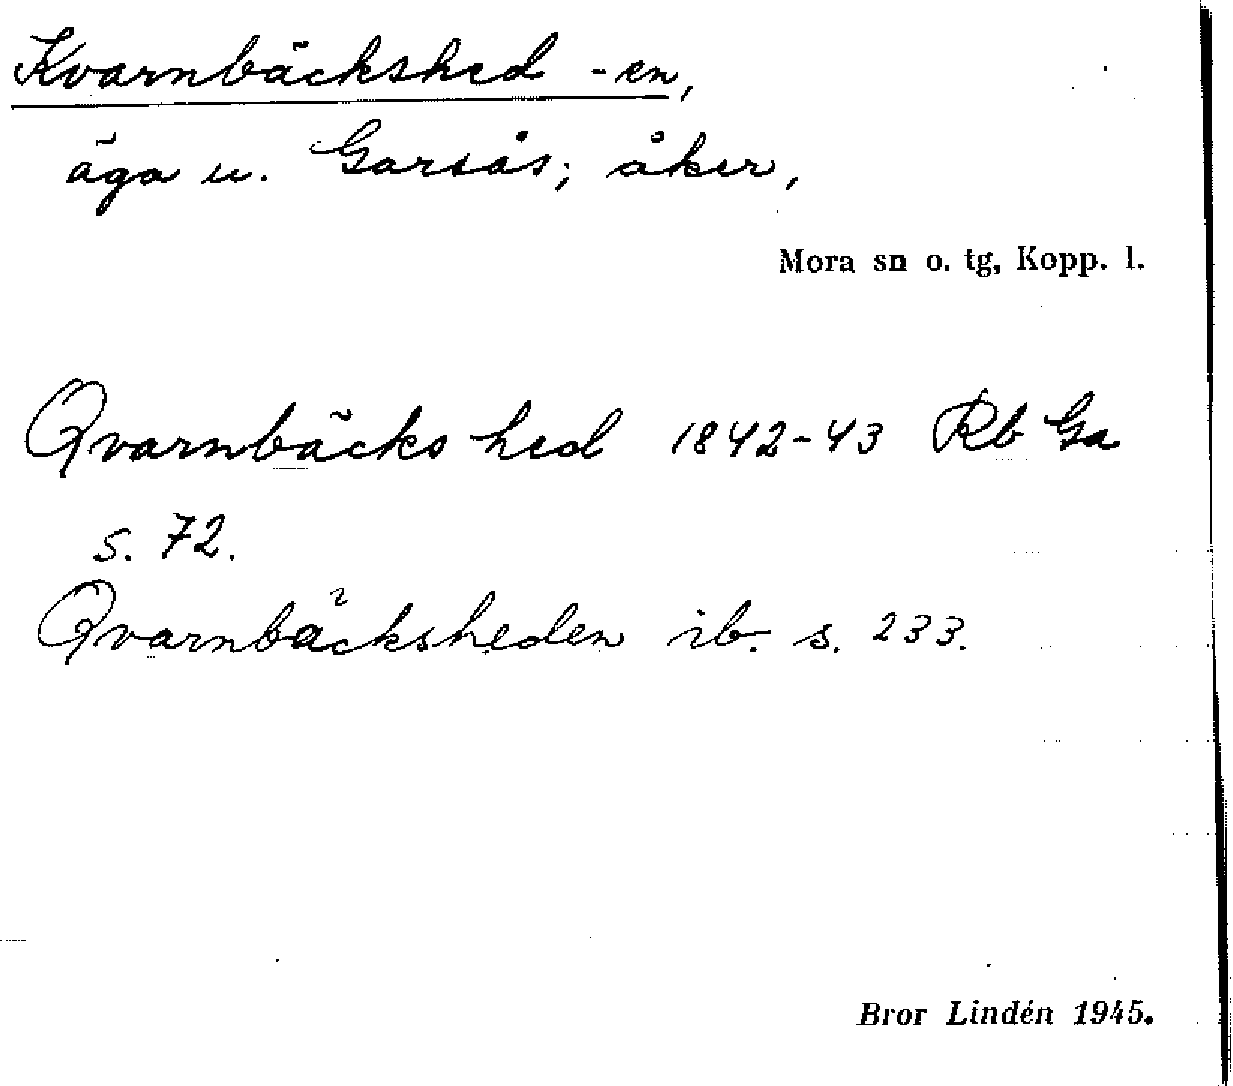 Kvarnbäckshed -en,
äga u. Garsås; åker,
Mora sn o. tg, Kopp. l.
Qvarnbäcks hed 1842-43 Rb Ga
s. 72.
Qvarnbäcksheden ib. s. 233.
Bror Lindén 1945.